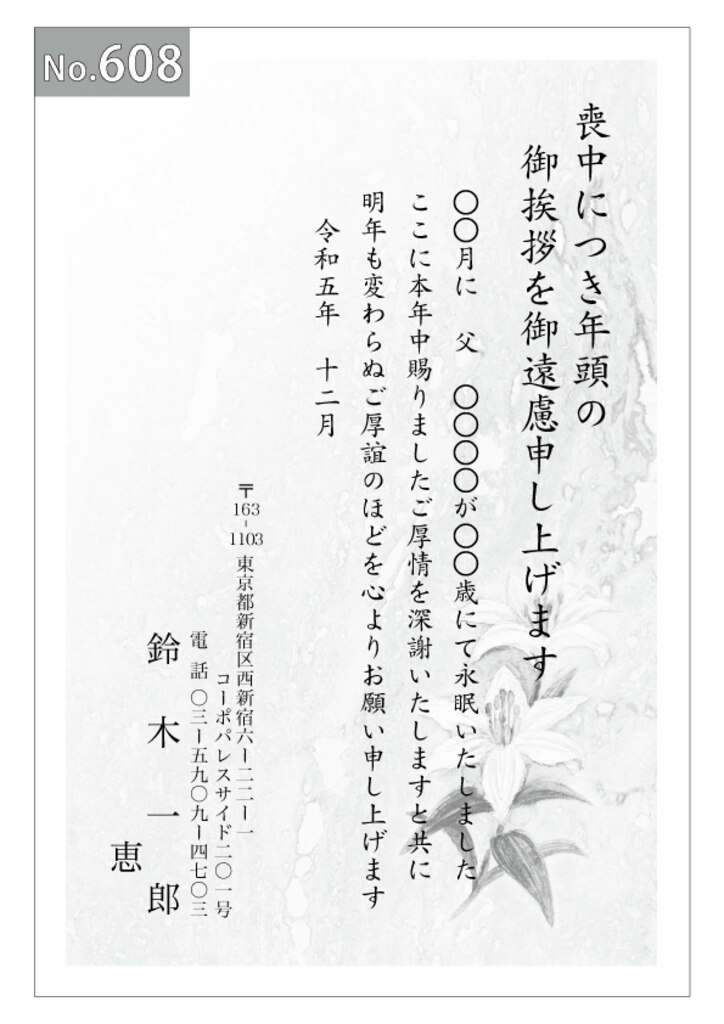 No.608
喪中につき年頭の
御挨拶を御遠慮申し上げます
〇〇月に　父　〇〇〇〇が〇〇歳にて永眠いたしました
ここに本年中賜りましたご厚情を深謝いたしますと共に
明年も変わらぬご厚誼のほどを心よりお願い申し上げます
令和五年　十二月
〒163-1103 東京都新宿区西新宿六ー二二ー一
コーポパレスサイド二〇一号
電話 〇三ー五九〇九ー四七〇三
鈴木一郎
恵